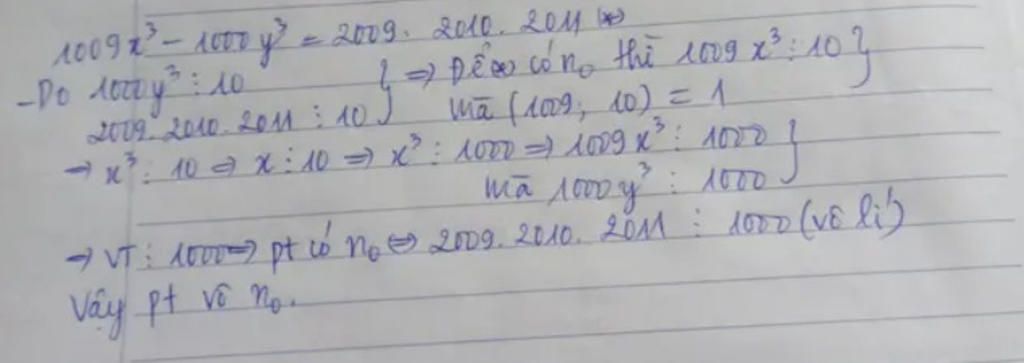 1009x³ - 1000y³ = 2009. 2010. 2011 (*)
- Do 1000y³ ⋮ 10 } ⇒ Để (*) có n₀ thì 1009x³ ⋮ 10 }
2009. 2010. 2011 ⋮ 10 } mà (1009; 10) = 1
→ x³ ⋮ 10 ⇒ x ⋮ 10 ⇒ x³ ⋮ 1000 ⇒ 1009x³ ⋮ 1000 }
mà 1000y³ ⋮ 1000 }
→ VT ⋮ 1000 ⇒ pt có n₀ ⇔ 2009. 2010. 2011 ⋮ 1000 (vô lí)
Vậy pt vô n₀.